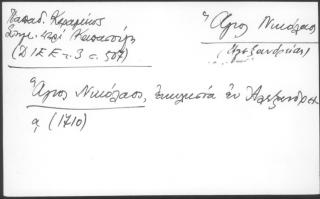 Παπαδ. Κεραμεύς
(ΔΙΕΕ τ. 3 σ. 507)
Ἅγιος Νικόλαος
(Ἀλεξανδρείας)
Ἅγιος Νικόλαος, ἐκκλησία ἐν Ἀλεξανδρεί
ᾳ (1710)